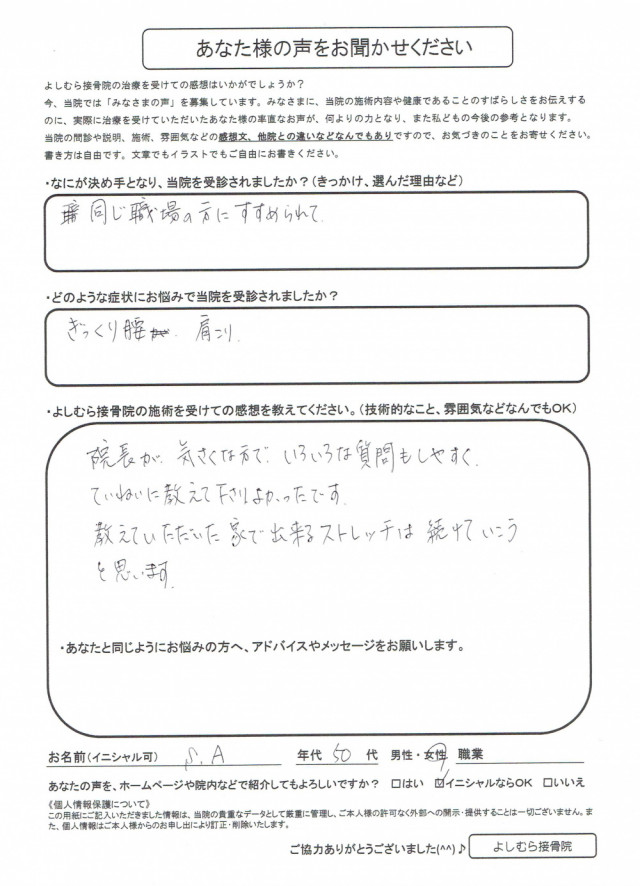 あなた様の声をお聞かせください
よしむら接骨院の治療を受けての感想はいかがでしょうか？
今、当院では「みなさまの声」を募集しています。みなさまに、当院の施術内容や健康であることのすばらしさをお伝えする
のに、実際に治療を受けていただいたあなた様の率直なお声が、何よりの力となり、また私どもの今後の参考となります。
当院の問診や説明、施術、雰囲気などの感想文、他院との違いなどなんでもありですので、お気づきのことをお寄せください。
書き方は自由です。文章でもイラストでもご自由にお書きください。
・なにが決め手となり、当院を受診されましたか？（きっかけ、選んだ理由など）
同じ職場の方にすすめられて.
・どのような症状にお悩みで当院を受診されましたか？
ぎっくり腰 . 肩こり.
・よしむら接骨院の施術を受けての感想を教えてください。（技術的なこと、雰囲気などなんでもOK）
院長が、気さくな方で、いろいろな質問もしやすく、
ていねいに教えて下さりよかったです.
教えていただいた家で出来るストレッチは続けていこう
と思います.
・あなたと同じようにお悩みの方へ、アドバイスやメッセージをお願いします。
お名前（イニシャル可） S.A 年代 50 代 男性・女性 職業
あなたの声を、ホームページや院内などで紹介してもよろしいですか？ □はい ☑イニシャルならOK □いいえ
《個人情報保護について》
この用紙にご記入いただきました情報は、当院の貴重なデータとして厳重に管理し、ご本人様の許可なく外部への開示・提供することは一切ございません。ま
た、個人情報はご本人様からのお申し出により訂正・削除いたします。
ご協力ありがとうございました(^^)♪ よしむら接骨院